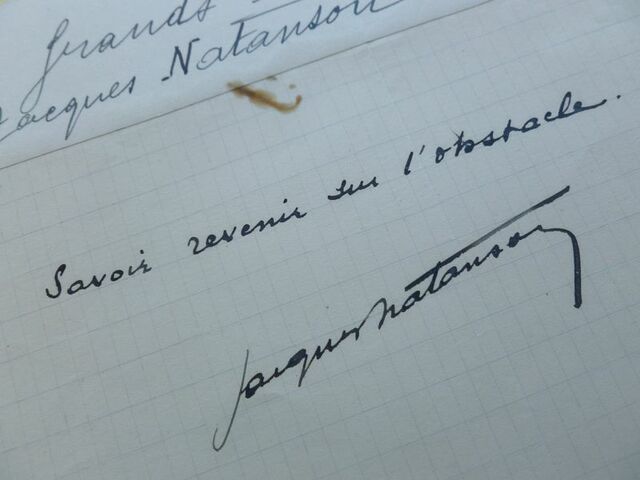 Grands
Jacques Natanson
Savoir revenir sur l'obstacle.
Jacques Natanson